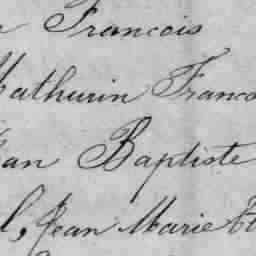 Francois
Mathurin Franco
ean Baptiste
l, Jean Marie